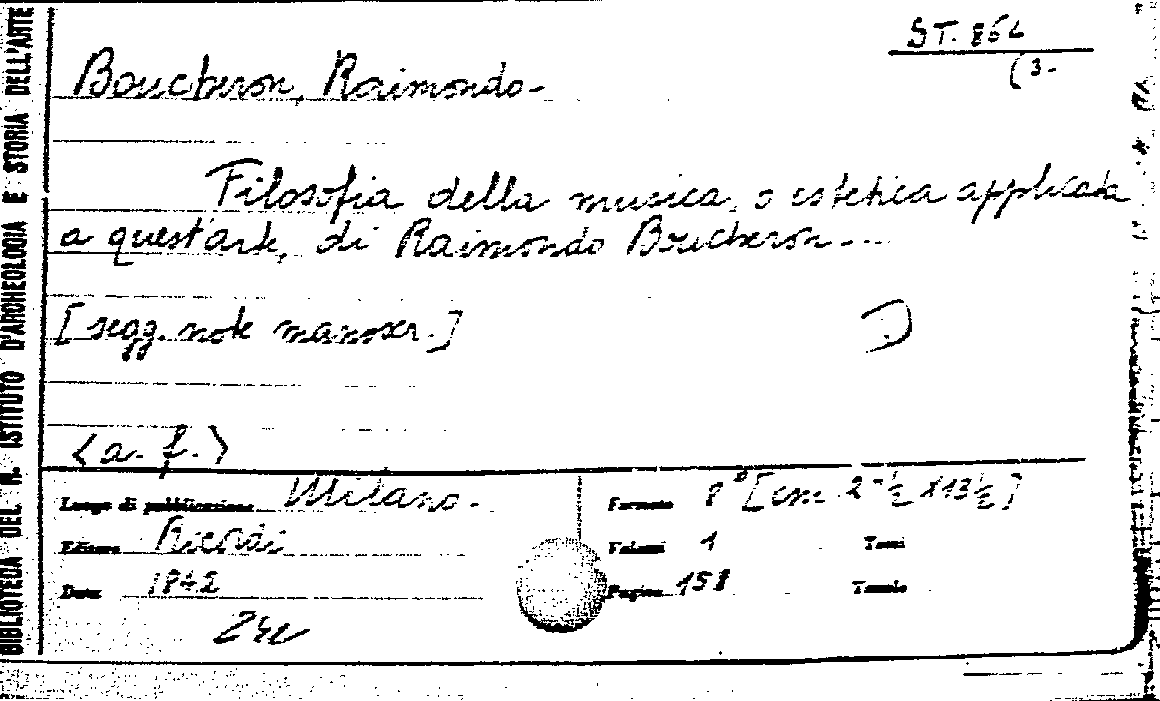 BIBLIOTECA DEL R. ISTITUTO D'ARCHEOLOGIA E STORIA DELL'ARTE
ST. 862
(3-
Boucheron, Raimondo-
Filosofia della musica, o estetica applicata
a quest'arte, di Raimondo Boucheron...
[segg. note manoscr.]
<a. f.>
Luogo di pubblicazione Milano.
Formato 8° [cm
Editore Ricordi
Volumi 1
Tomi
Data 1842
Pagine 158
Tavole